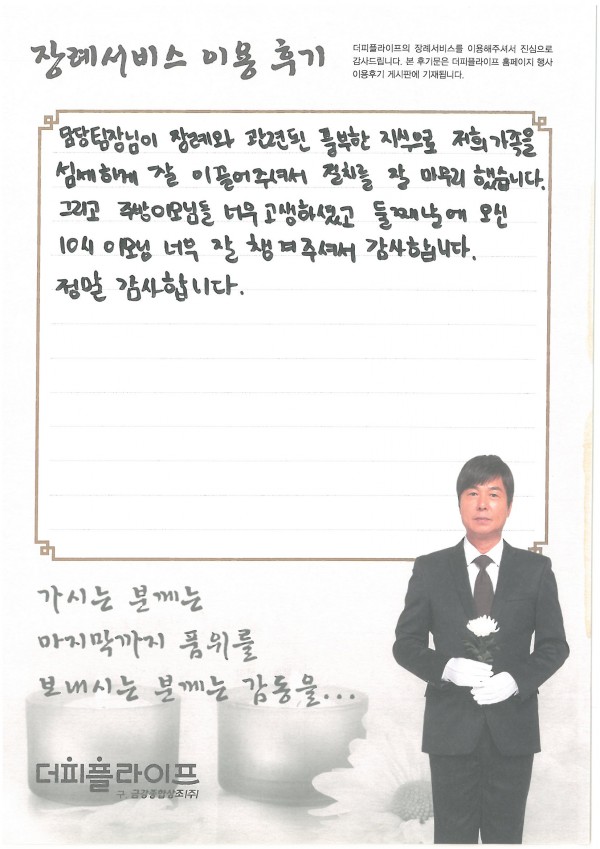 장례서비스 이용 후기
더피플라이프의 장례서비스를 이용해주셔서 진심으로
감사드립니다. 본 후기문은 더피플라이프 홈페이지 행사
이용후기 게시판에 기재됩니다.
담당팀장님이 장례와 관련된 풍부한 지식으로 저희가족을
섬세하게 잘 이끌어주셔서 절차를 잘 마무리 했습니다.
그리고 주방이모님들 너무 고생하셨고 둘째날에 오신
10시 이모님 너무 잘 챙겨주셔서 감사합니다.
정말 감사합니다.
가시는 분께는
마지막까지 품위를
보내시는 분께는 감동을...
더피플라이프
구. 금강종합상조(주)